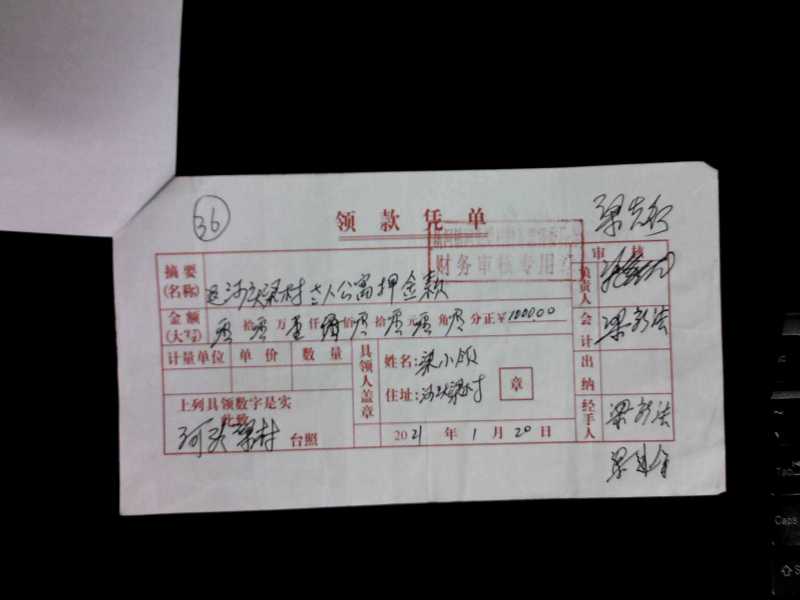 36
领款凭单
财务审核专用章
审核
摘要
(名称)
河头梁村老人公寓押金款
负责人
金额
(大写)
零拾零万壹仟零佰零拾零元零角零分正￥1000.00
会计
梁新法
计量单位 单价 数量
具领人盖章
姓名:梁小
住址:河头梁村
章
出纳
上列具领数字是实
此致
河头梁村 台照
2021年1月20日
经手人
梁新法